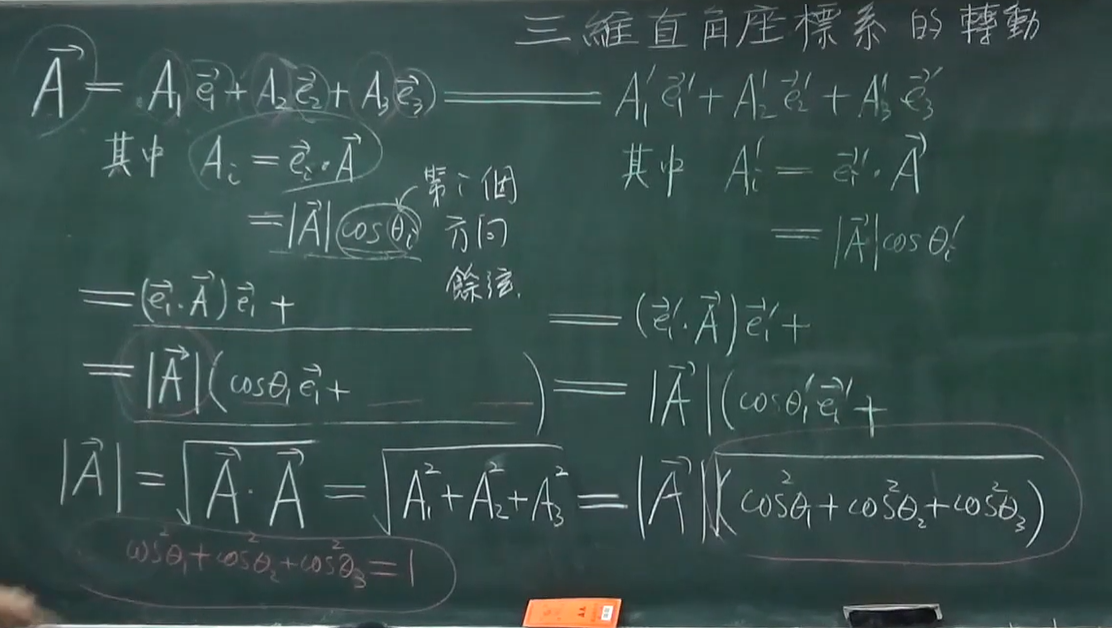 三維直角座標系的轉動
$\vec{A} = A_1\vec{e_1} + A_2\vec{e_2} + A_3\vec{e_3} = A_1'\vec{e_1}' + A_2'\vec{e_2}' + A_3'\vec{e_3}'$
其中 $A_i = \vec{e_i} \cdot \vec{A}$
$= |\vec{A}| \cos\theta_i$
第i個
方向
餘弦
其中 $A_i' = \vec{e_i}' \cdot \vec{A}$
$= |\vec{A}| \cos\theta_i'$
$= (\vec{e_1} \cdot \vec{A})\vec{e_1} +$
$= (\vec{e_1}' \cdot \vec{A})\vec{e_1}' +$
$= |\vec{A}|(\cos\theta_1\vec{e_1} + \_\_ \_\_)$
$= |\vec{A}|(\cos\theta_1'\vec{e_1}' +$
$|\vec{A}| = \sqrt{\vec{A} \cdot \vec{A}} = \sqrt{A_1^2 + A_2^2 + A_3^2} = |\vec{A}|\sqrt{(\cos^2\theta_1 + \cos^2\theta_2 + \cos^2\theta_3)}$
$\cos^2\theta_1 + \cos^2\theta_2 + \cos^2\theta_3 = 1$